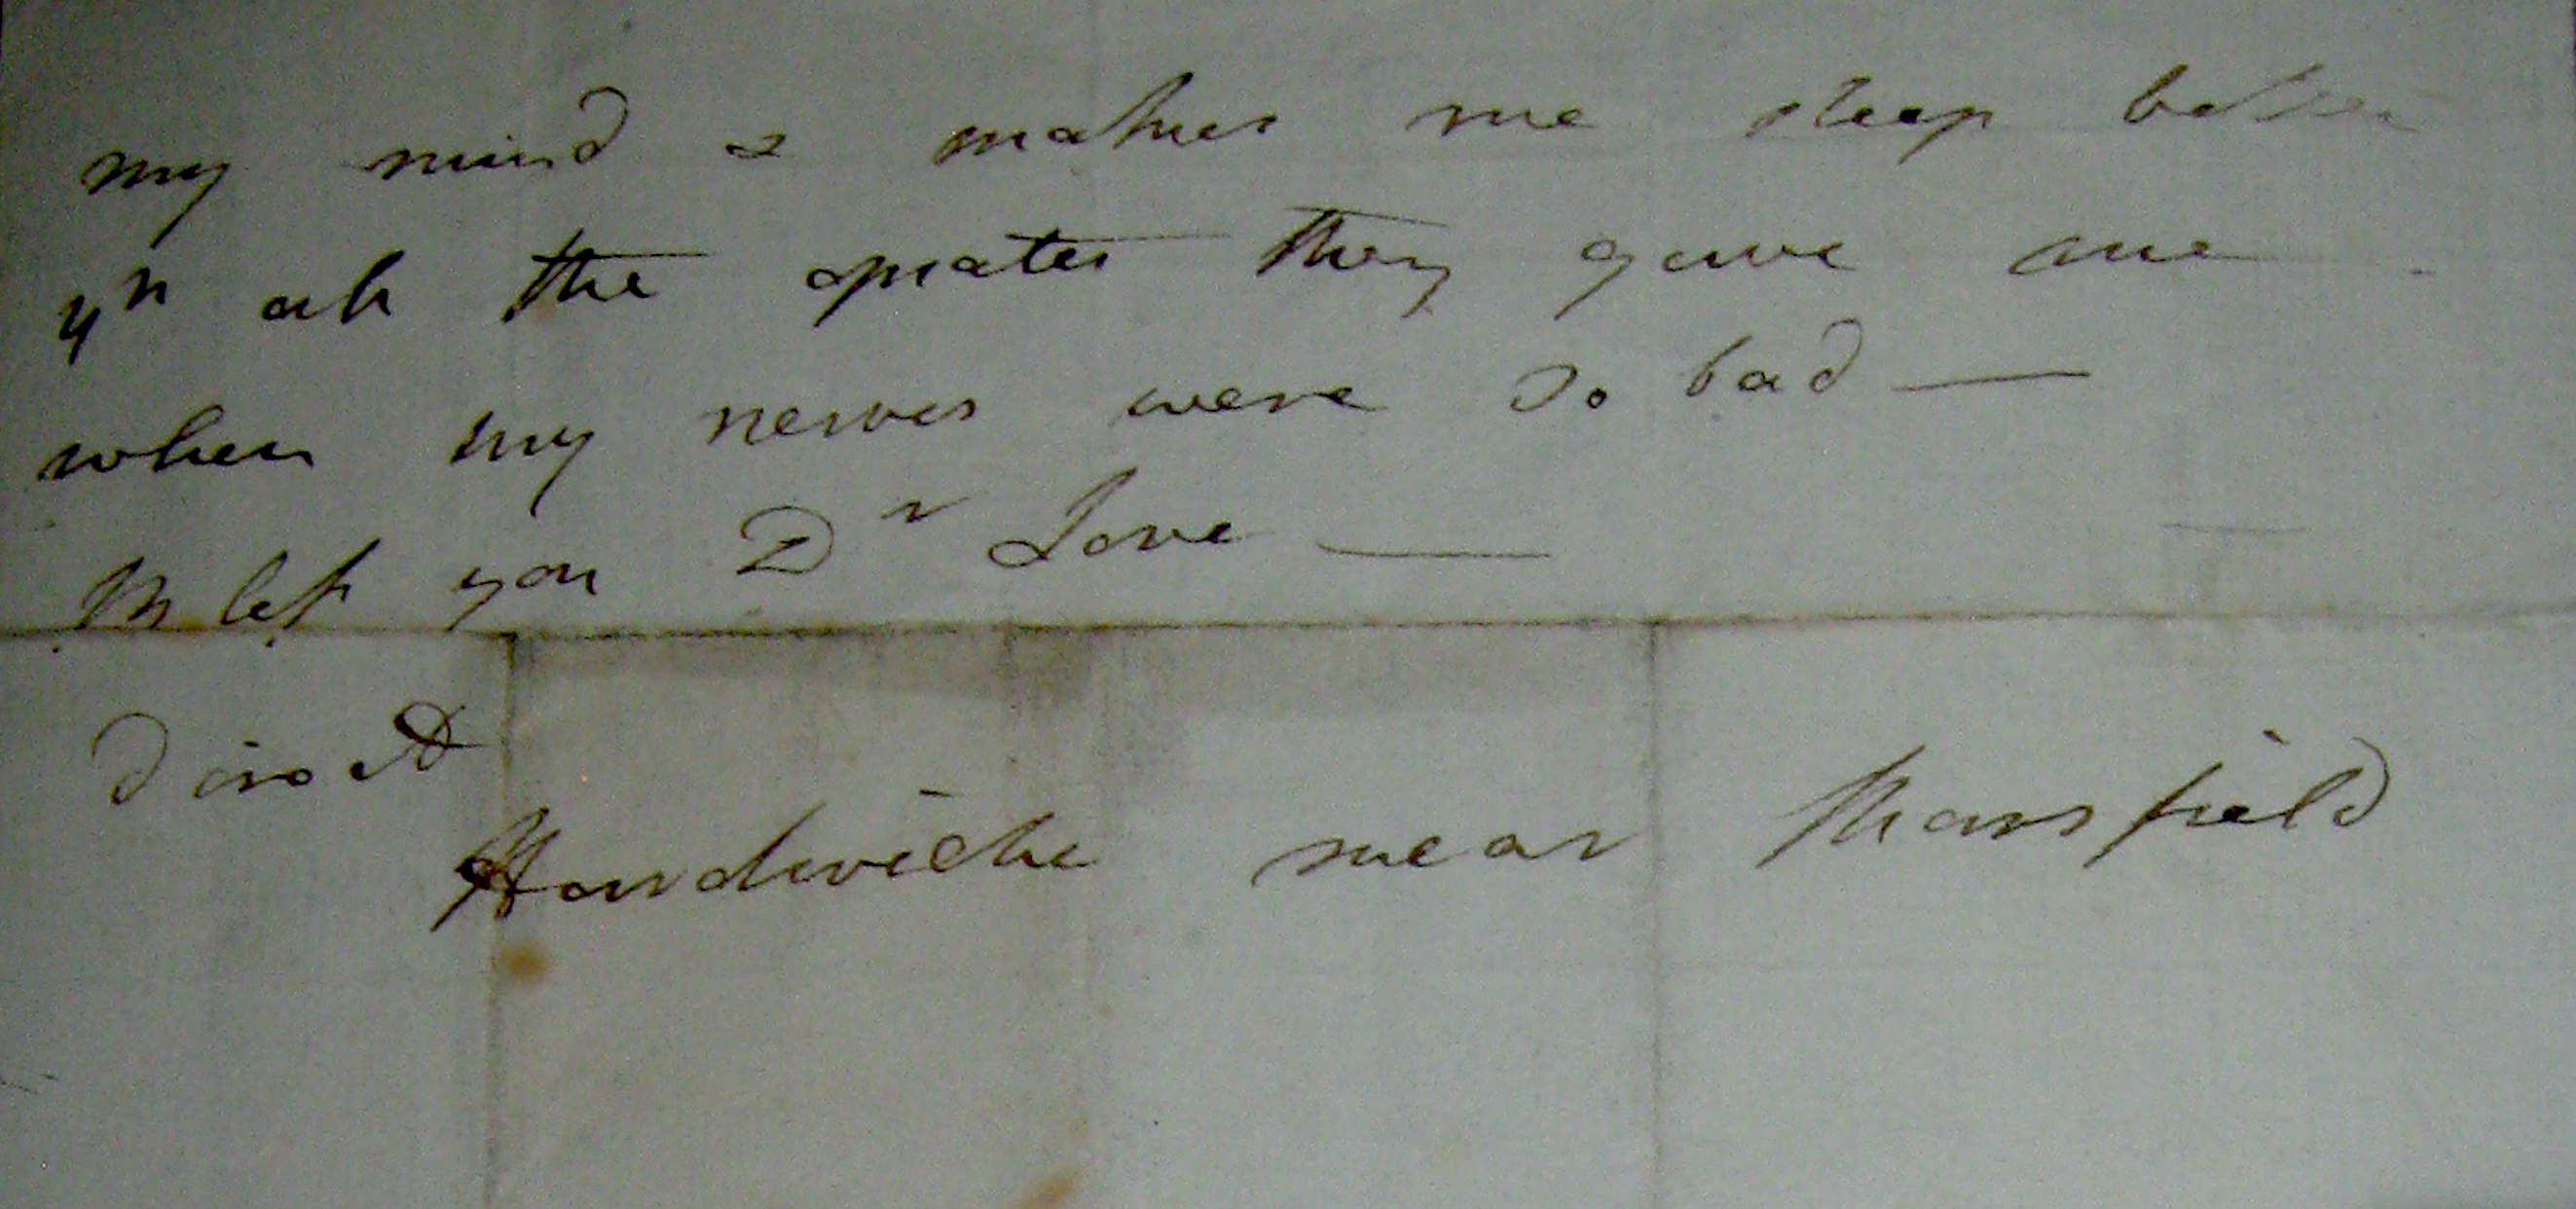 my mind & makes me sleep better
yn all the opiates they gave me
when my nerves were so bad —
Bless you Dr Love —
direct
Hardwicke near Mansfield